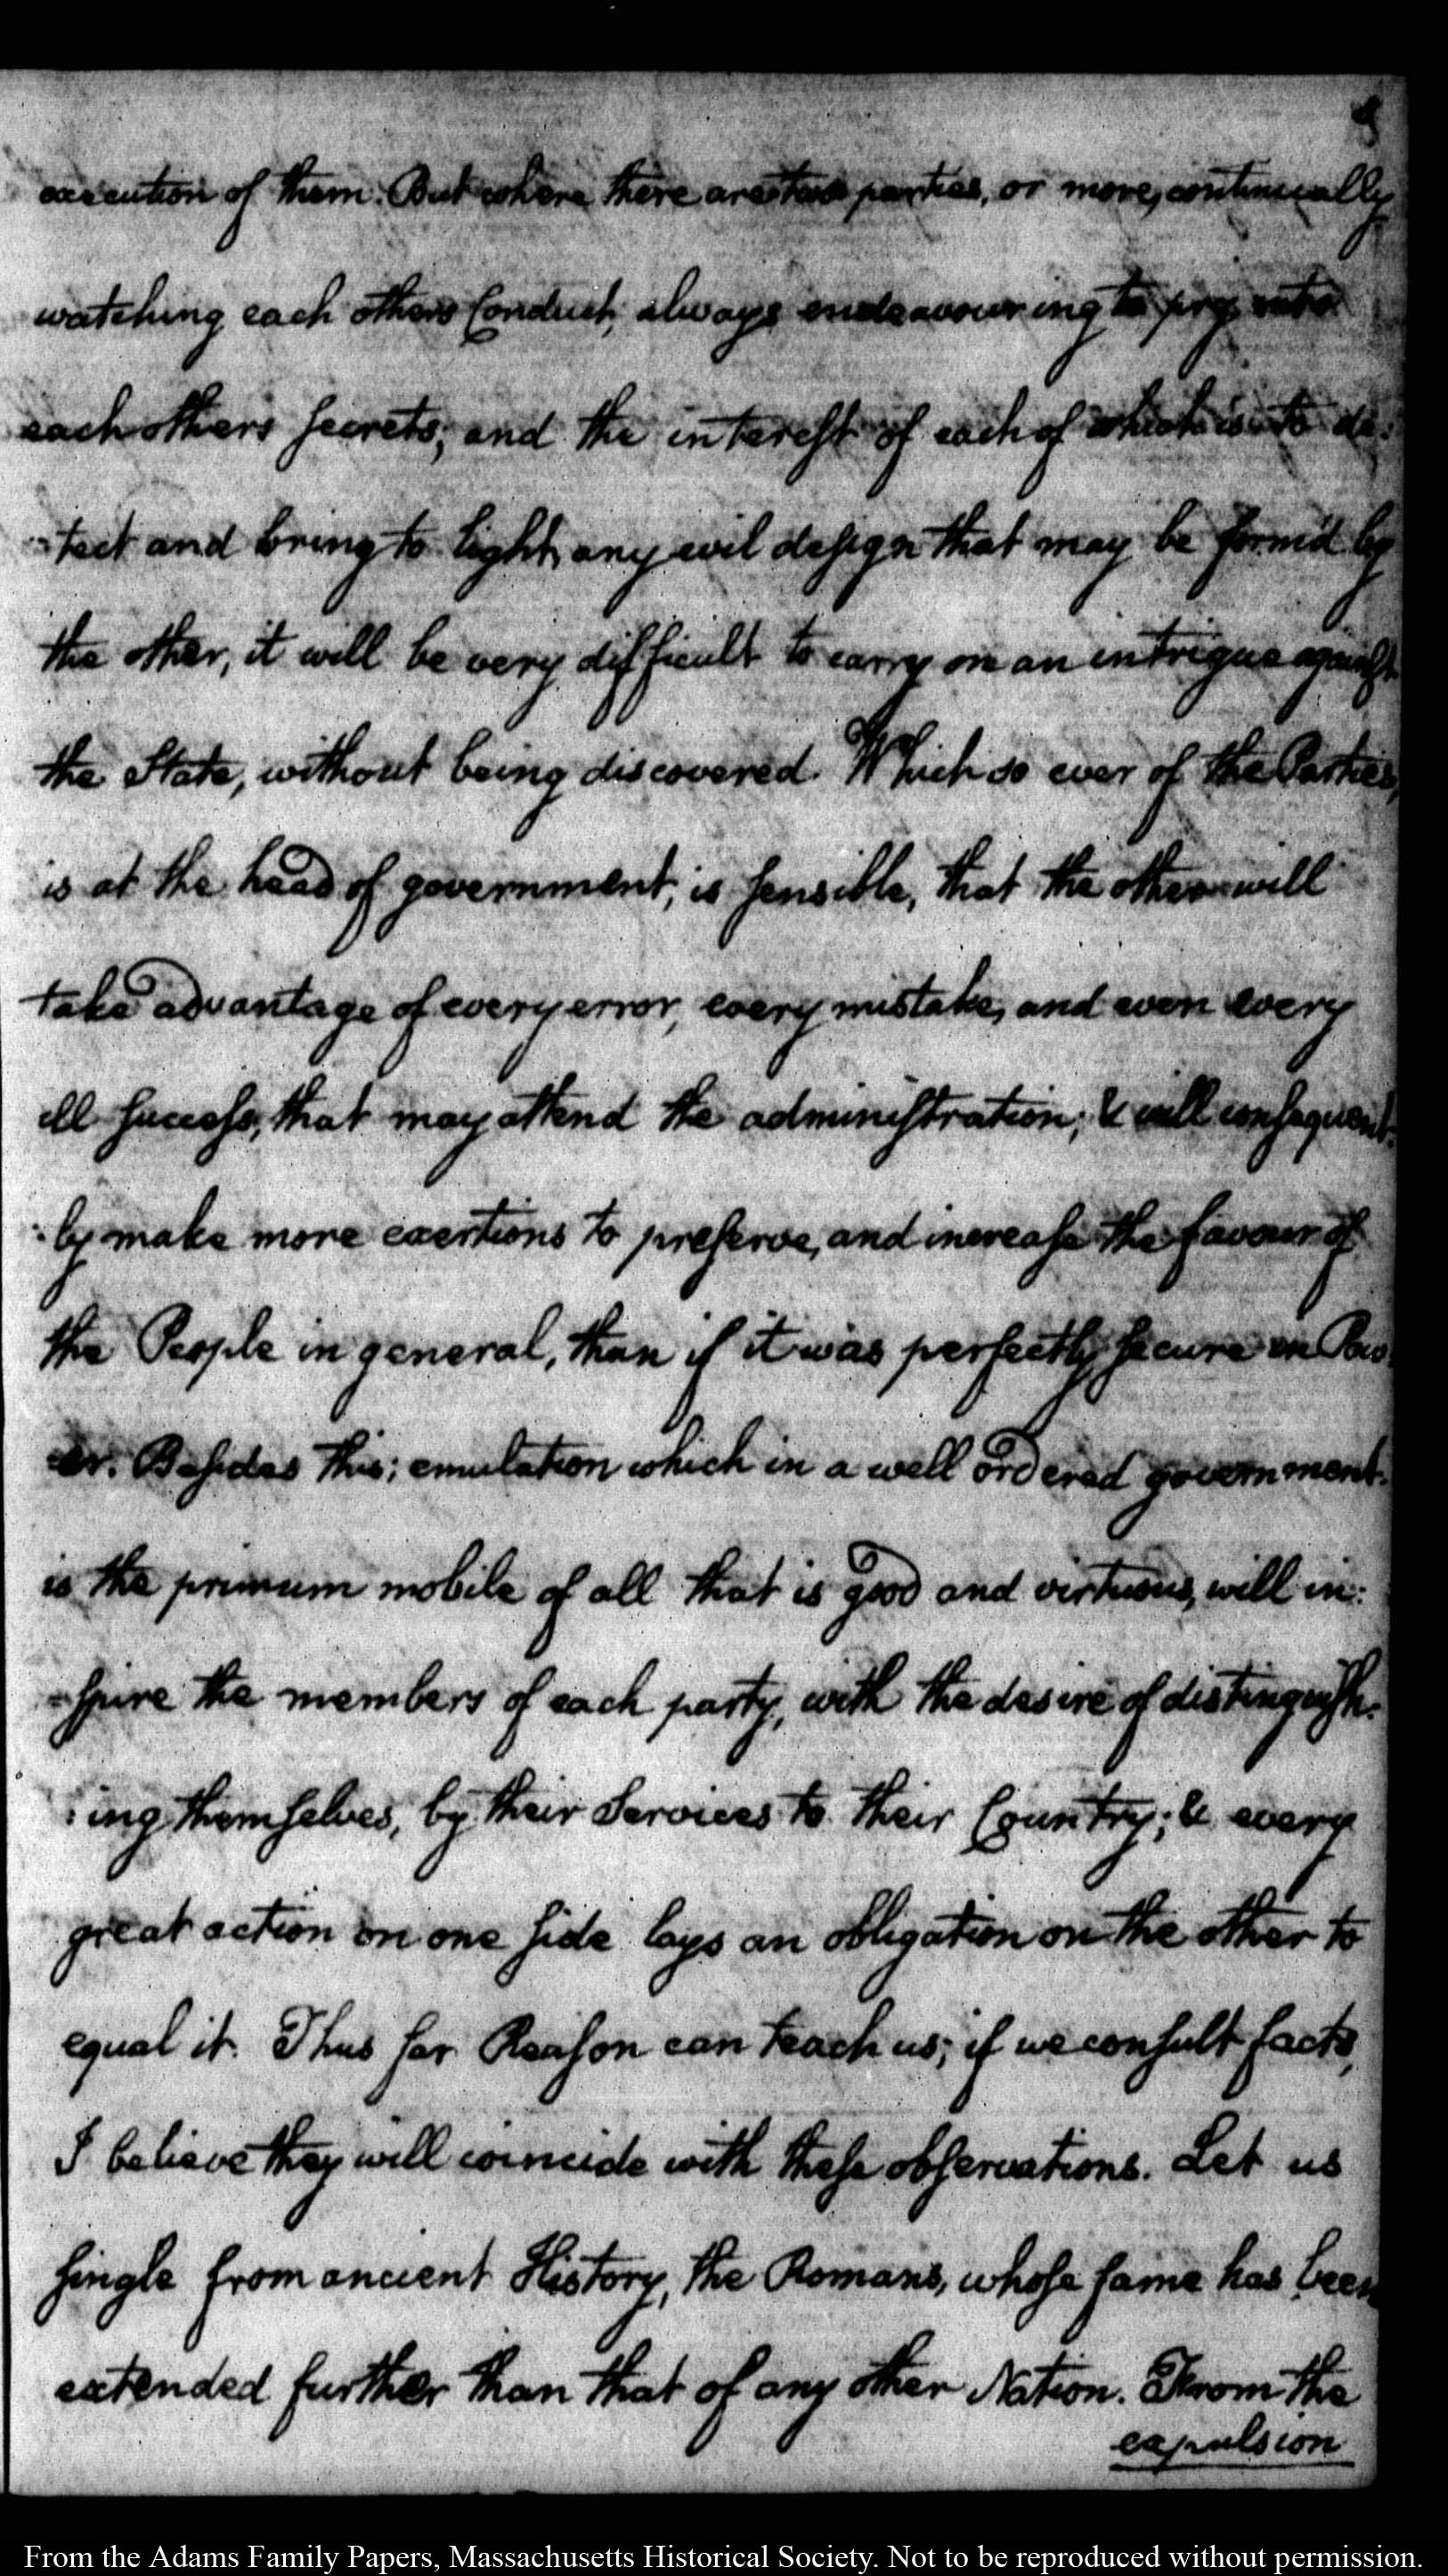 execution of them. But where there are two parties, or more, continually
watching each others Conduct, always endeavouring to pry into
each others secrets; and the interest of each of which is to de:
:tect and bring to light, any evil design that may be form'd by
the other, it will be very difficult to carry on an intrigue against
the State, without being discovered. Which so ever of the Parties,
is at the head of government, is sensible, that the other will
take advantage of every error, every mistake, and even every
ill success, that may attend the administration; & will consequent:
:ly make more exertions to preserve, and increase the favour of
the People in general, than if it was perfectly secure in Pow
:er. Besides this; emulation which in a well ordered government
is the primum mobile of all that is good and virtuous, will in:
:spire the members of each party, with the desire of distinguish:
:ing themselves, by their Services to their Country; & every
great action on one side lays an obligation on the other to
equal it. Thus far Reason can teach us; if we consult facts,
I believe they will coincide with these observations. Let us
single from ancient History, the Romans, whose fame has been
extended further than that of any other Nation. From the
expulsion
From the Adams Family Papers, Massachusetts Historical Society. Not to be reproduced without permission.